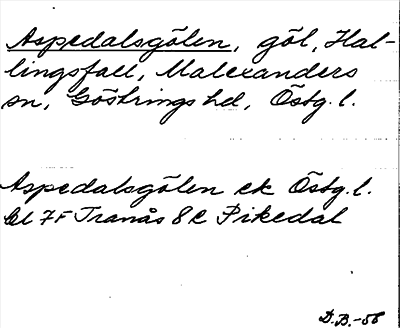 Aspedalsgölen, göl, Hal-
lingsfall, Malexanders
sn, Göstrings hd, Östg. l.
Aspedalsgölen ek Östg. l.
bl 7F Tranås 8c Pikedal
D.B.-58